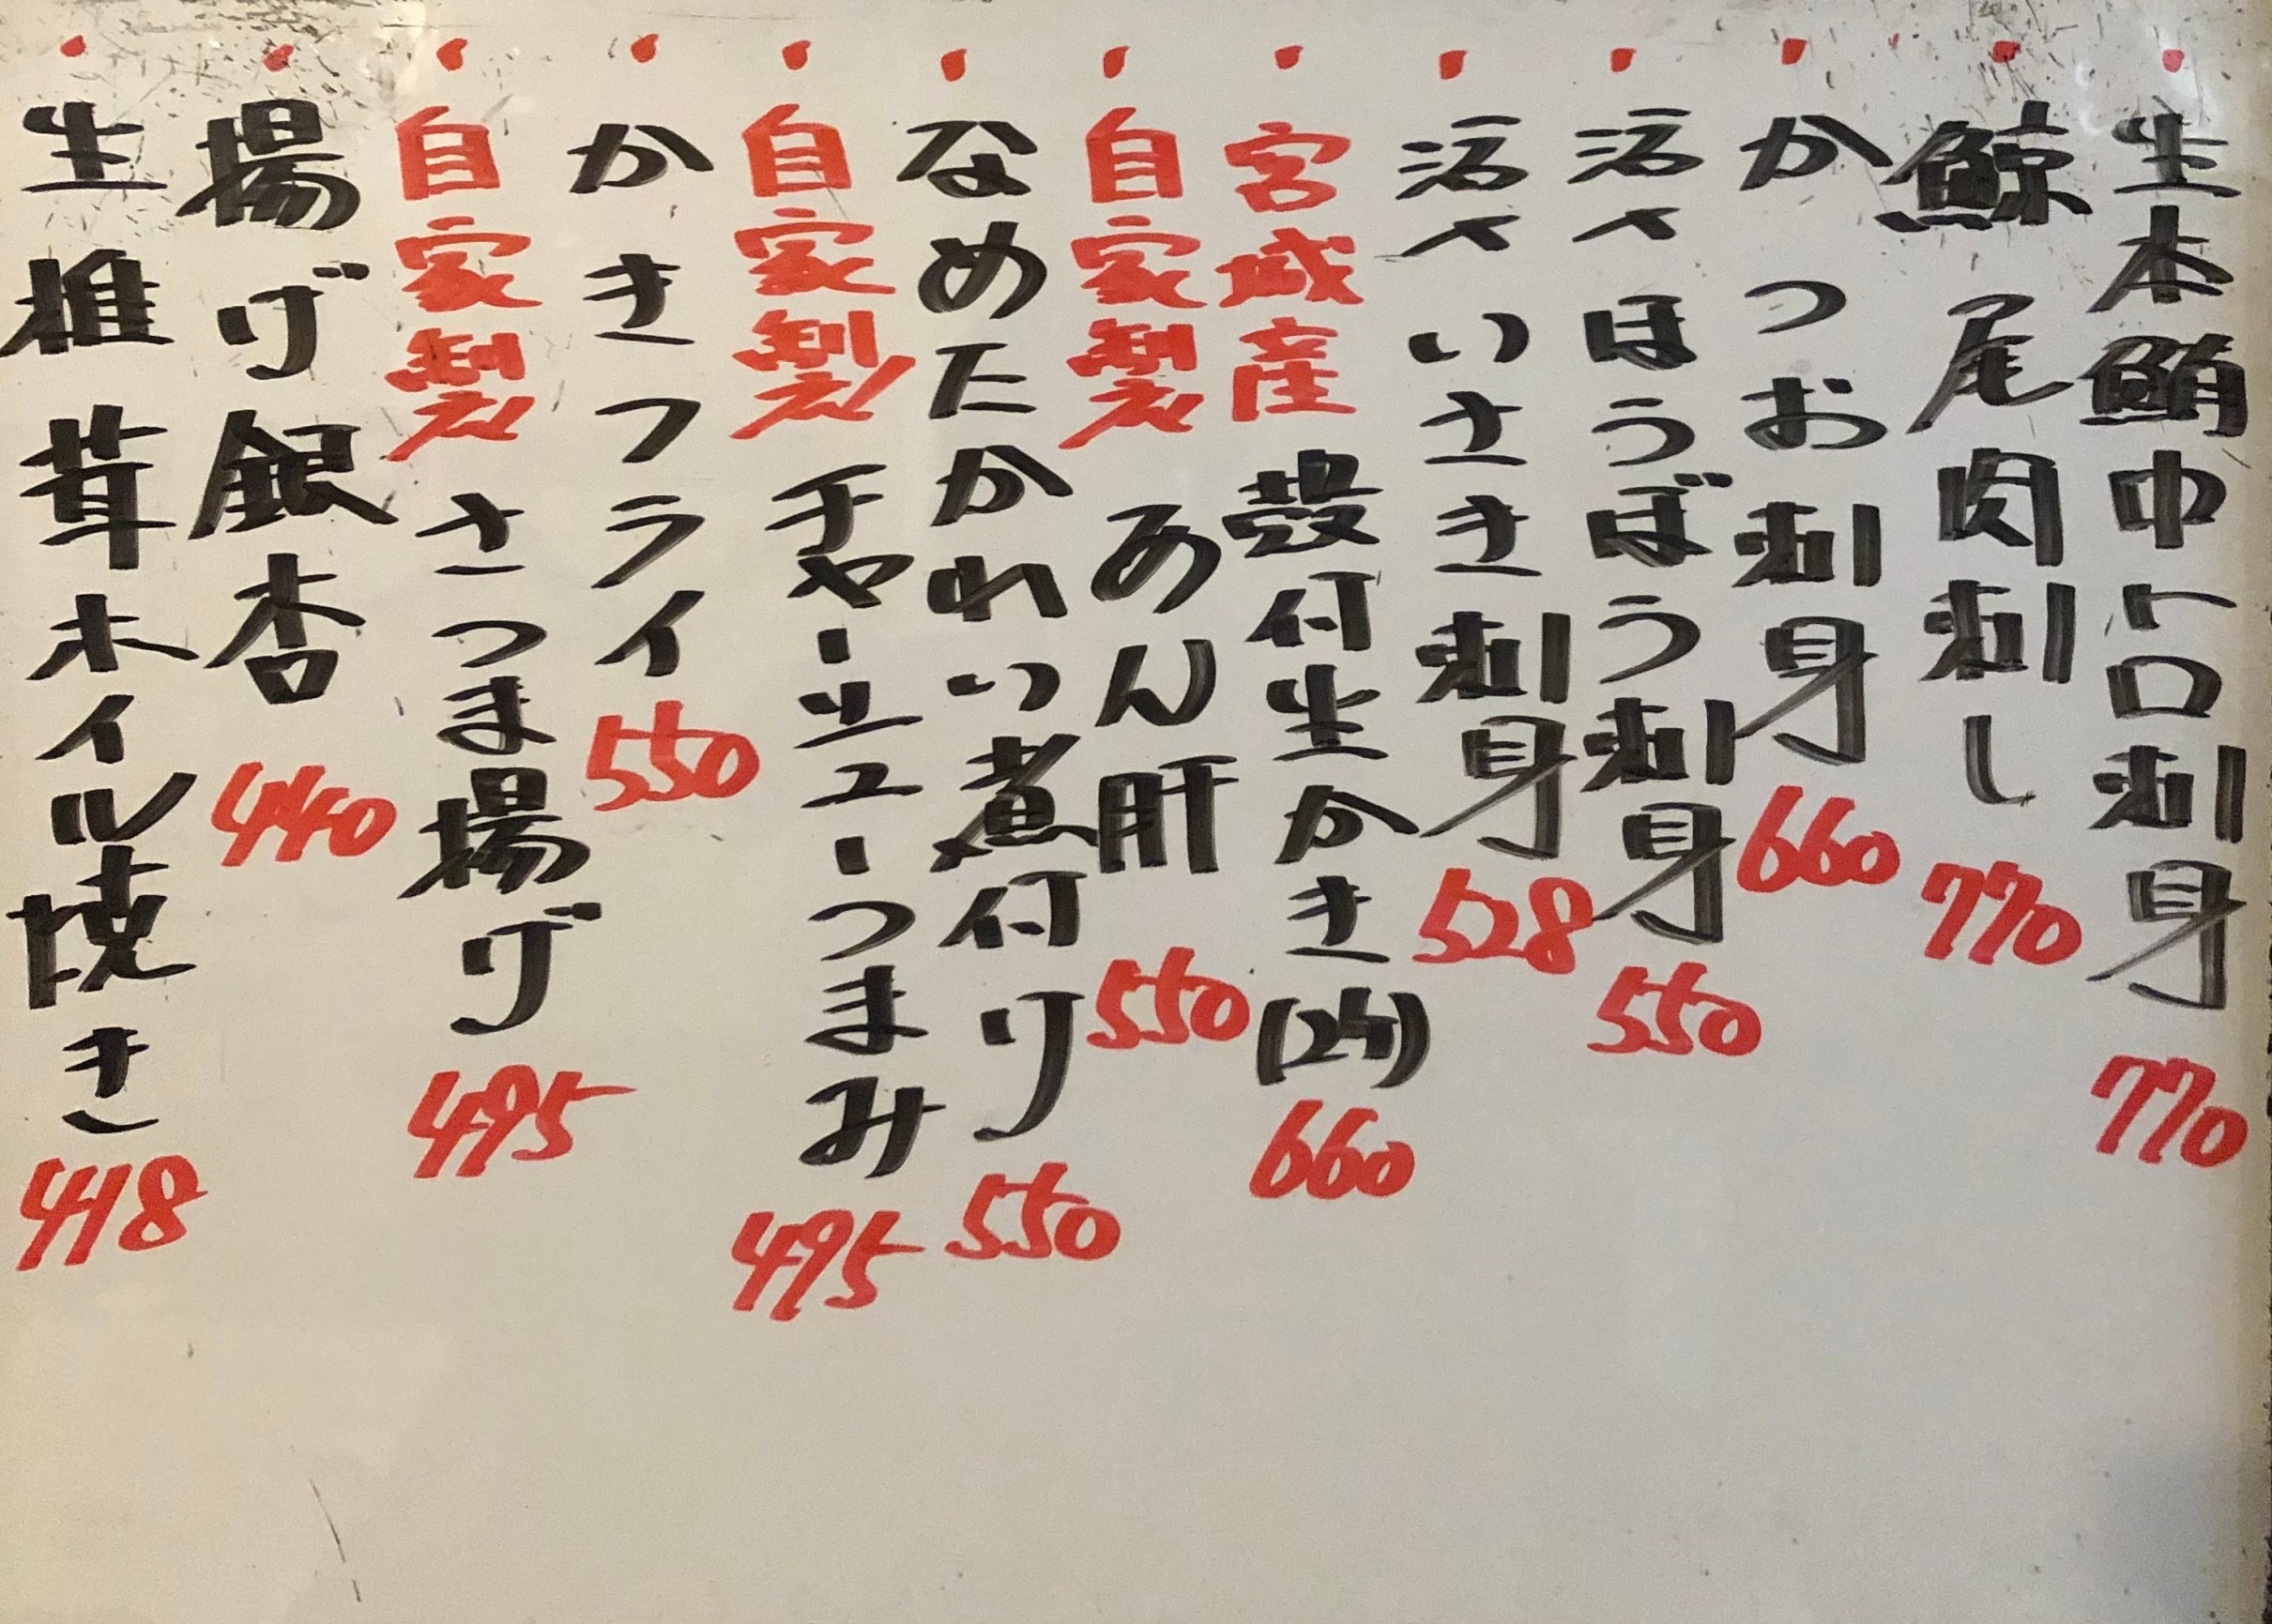 ・生本鮪中トロ刺身 770
・鯨尾肉刺し 770
・かつお刺身 660
・活〆ほうぼう刺身 550
・活〆いさき刺身 528
・宮城産 殻付生かき(2ヶ) 660
・自家製 あん肝 550
・なめたかれい煮付り 550
・自家製チャーシューつまみ 495
・かきフライ 550
・自家製 さつま揚げ 495
・揚げ銀杏 440
・生椎茸ホイル焼き 418